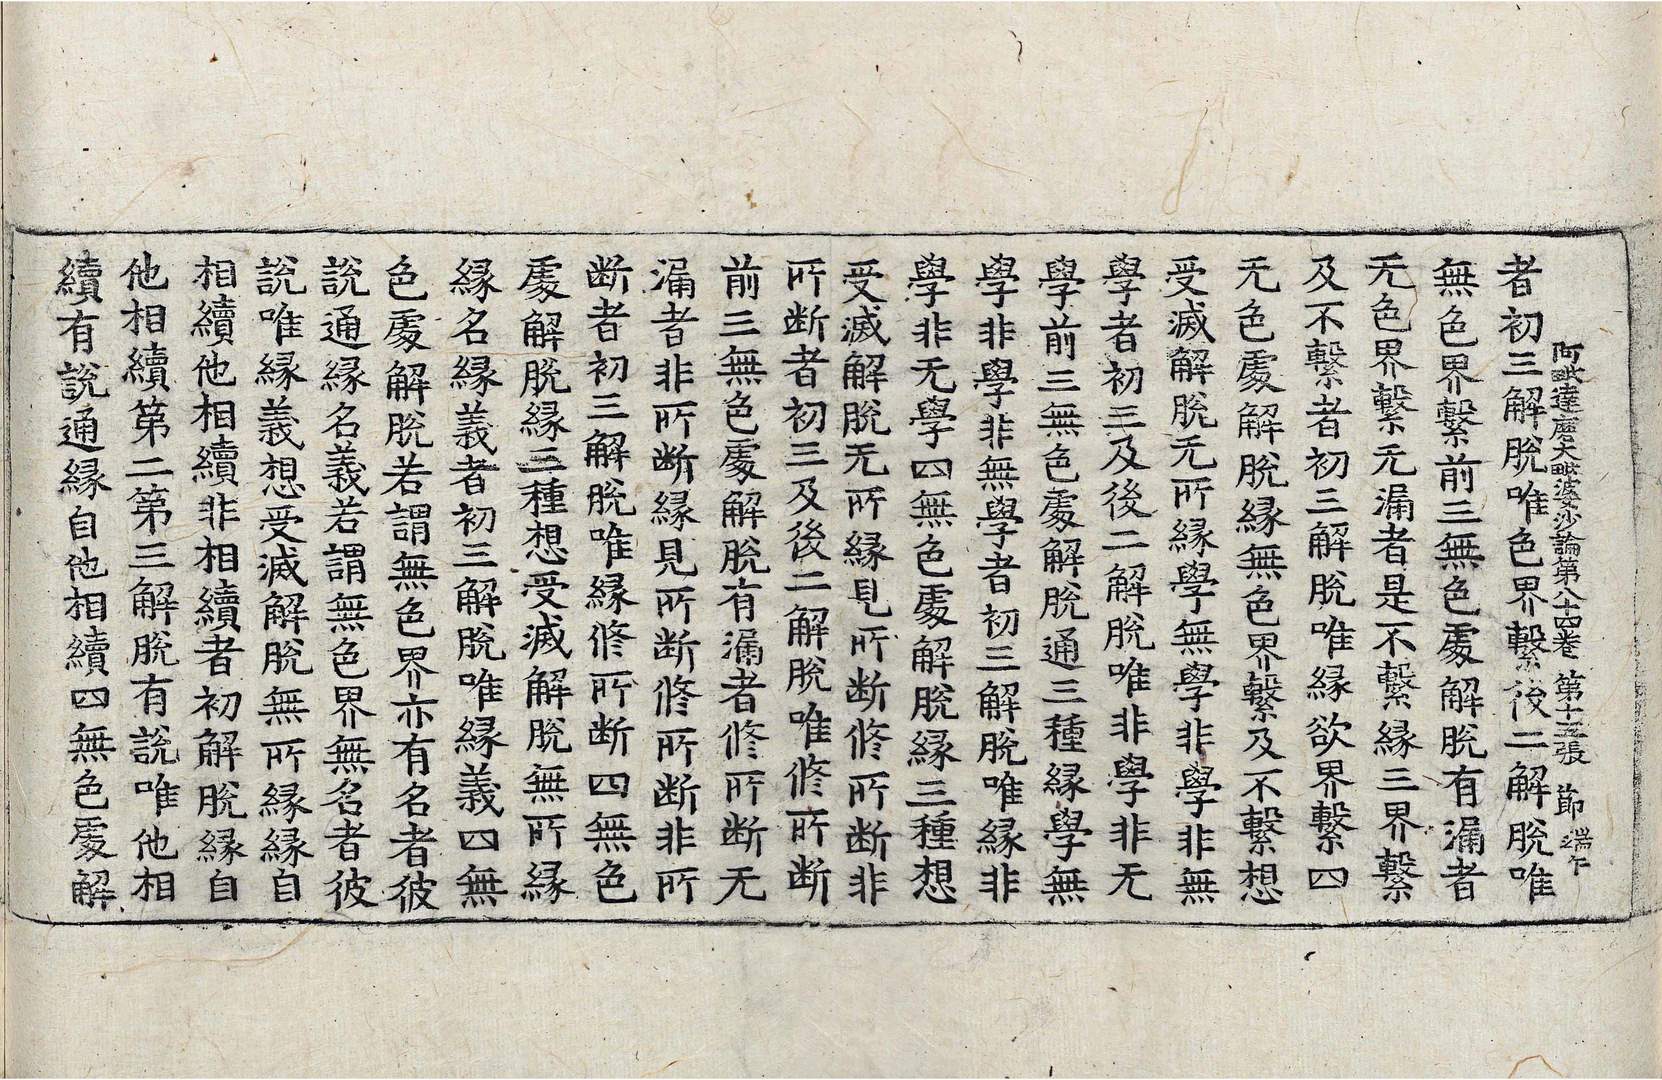 阿毗達磨大毗婆沙論第八十四卷 第十五張 節 端午
者初三解脫唯色界繫後二解脫唯
無色界繫前三無色處解脫有漏者
无色界繫无漏者是不繫縁三界繫
及不繫者初三解脫唯縁欲界繫四
无色處解脫縁無色界繫及不繫想
受滅解脫无所縁學無學非學非無
學者初三及後二解脫唯非學非无
學前三無色處解脫通三種縁學無
學非學非無學者初三解脫唯縁非
學非无學四無色處解脫縁三種想
受滅解脫无所縁見所断修所断非
所断者初三及後二解脫唯修所断
前三無色處解脫有漏者修所断无
漏者非所断縁見所断修所断非所
断者初三解脫唯縁修所断四無色
處解脫縁三種想受滅解脫無所縁
縁名縁義者初三解脫唯縁義四無
色處解脫若謂無色界亦有名者彼
說通縁名義若謂無色界無名者彼
說唯縁義想受滅解脫無所縁縁自
相續他相續非相續者初解脫縁自
他相續第二第三解脫有說唯他相
續有說通縁自他相續四無色處解